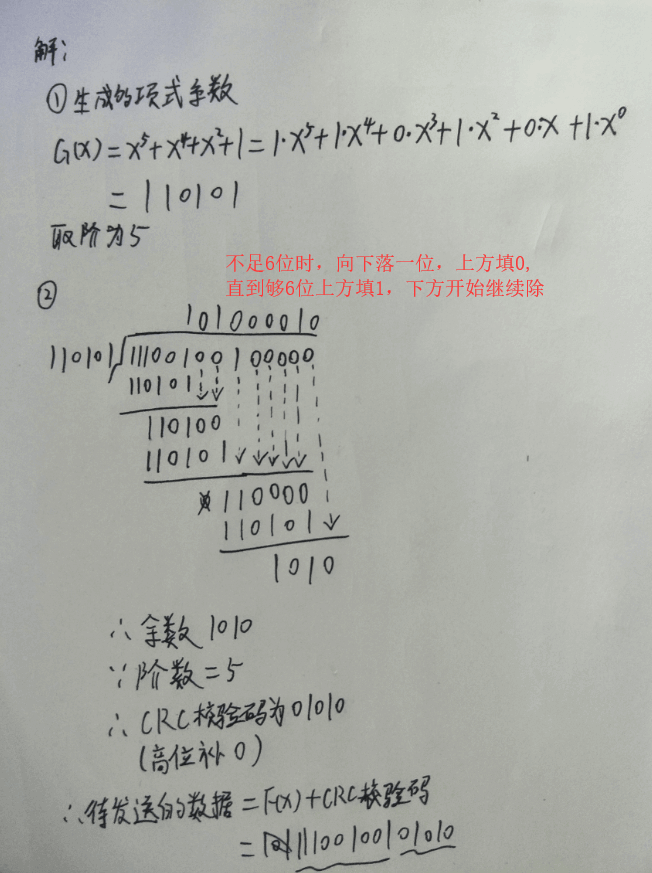 解：
①生成的项式系数
G(X)=X⁵+X⁴+X²+1=1·X⁵+1·X⁴+0·X³+1·X²+0·X+1·X⁰
=110101
取阶为5
不足6位时，向下落一位，上方填0,
直到够6位上方填1，下方开始继续除
②
101000010
110101 11100100100000
110101
110100
110101
110000
110101
1010
∴余数1010
∵阶数=5
∴CRC校验码为01010
(高位补0)
∴待发送的数据=F(x)+CRC校验码
=11100100101010